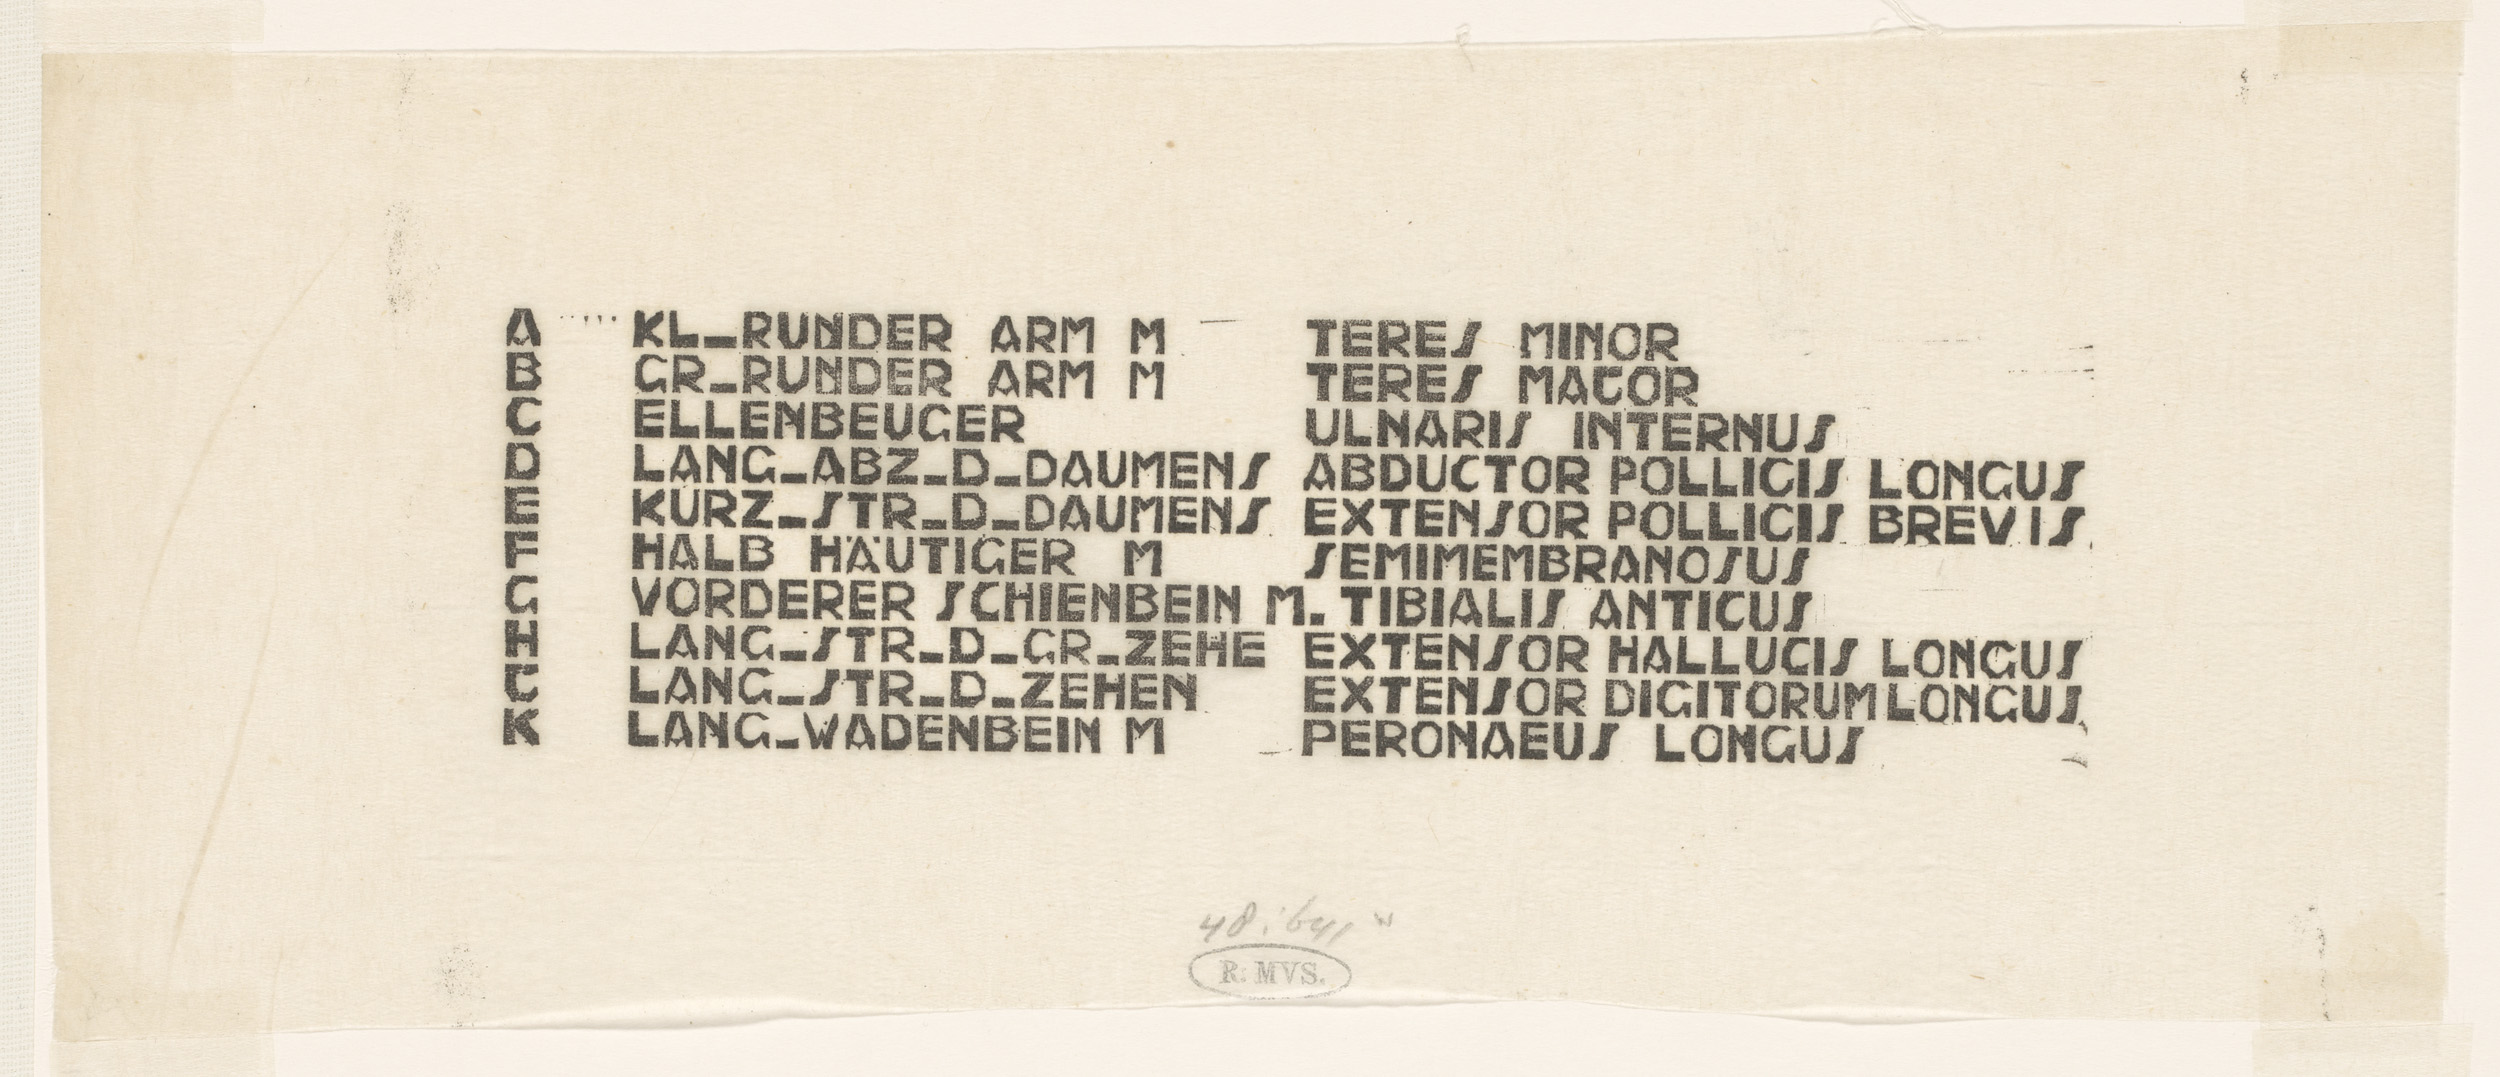 A KL_RUNDER ARM M TERES MINOR
B GR_RUNDER ARM M TERES MAJOR
C ELLENBEUGER ULNARIS INTERNUS
D LANG_ABZ_D_DAUMENS ABDUCTOR POLLICIS LONGUS
E KURZ_STR_D_DAUMENS EXTENSOR POLLICIS BREVIS
F HALB HÄUTIGER M SEMIMEMBRANOSUS
G VORDERER SCHIENBEIN M. TIBIALIS ANTICUS
H LANG_STR_D_GR_ZEHE EXTENSOR HALLUCIS LONGUS
J LANG_STR_D_ZEHEN EXTENSOR DIGITORUM LONGUS
K LANG_WADENBEIN M PERONAEUS LONGUS
48:641
R. MVS.